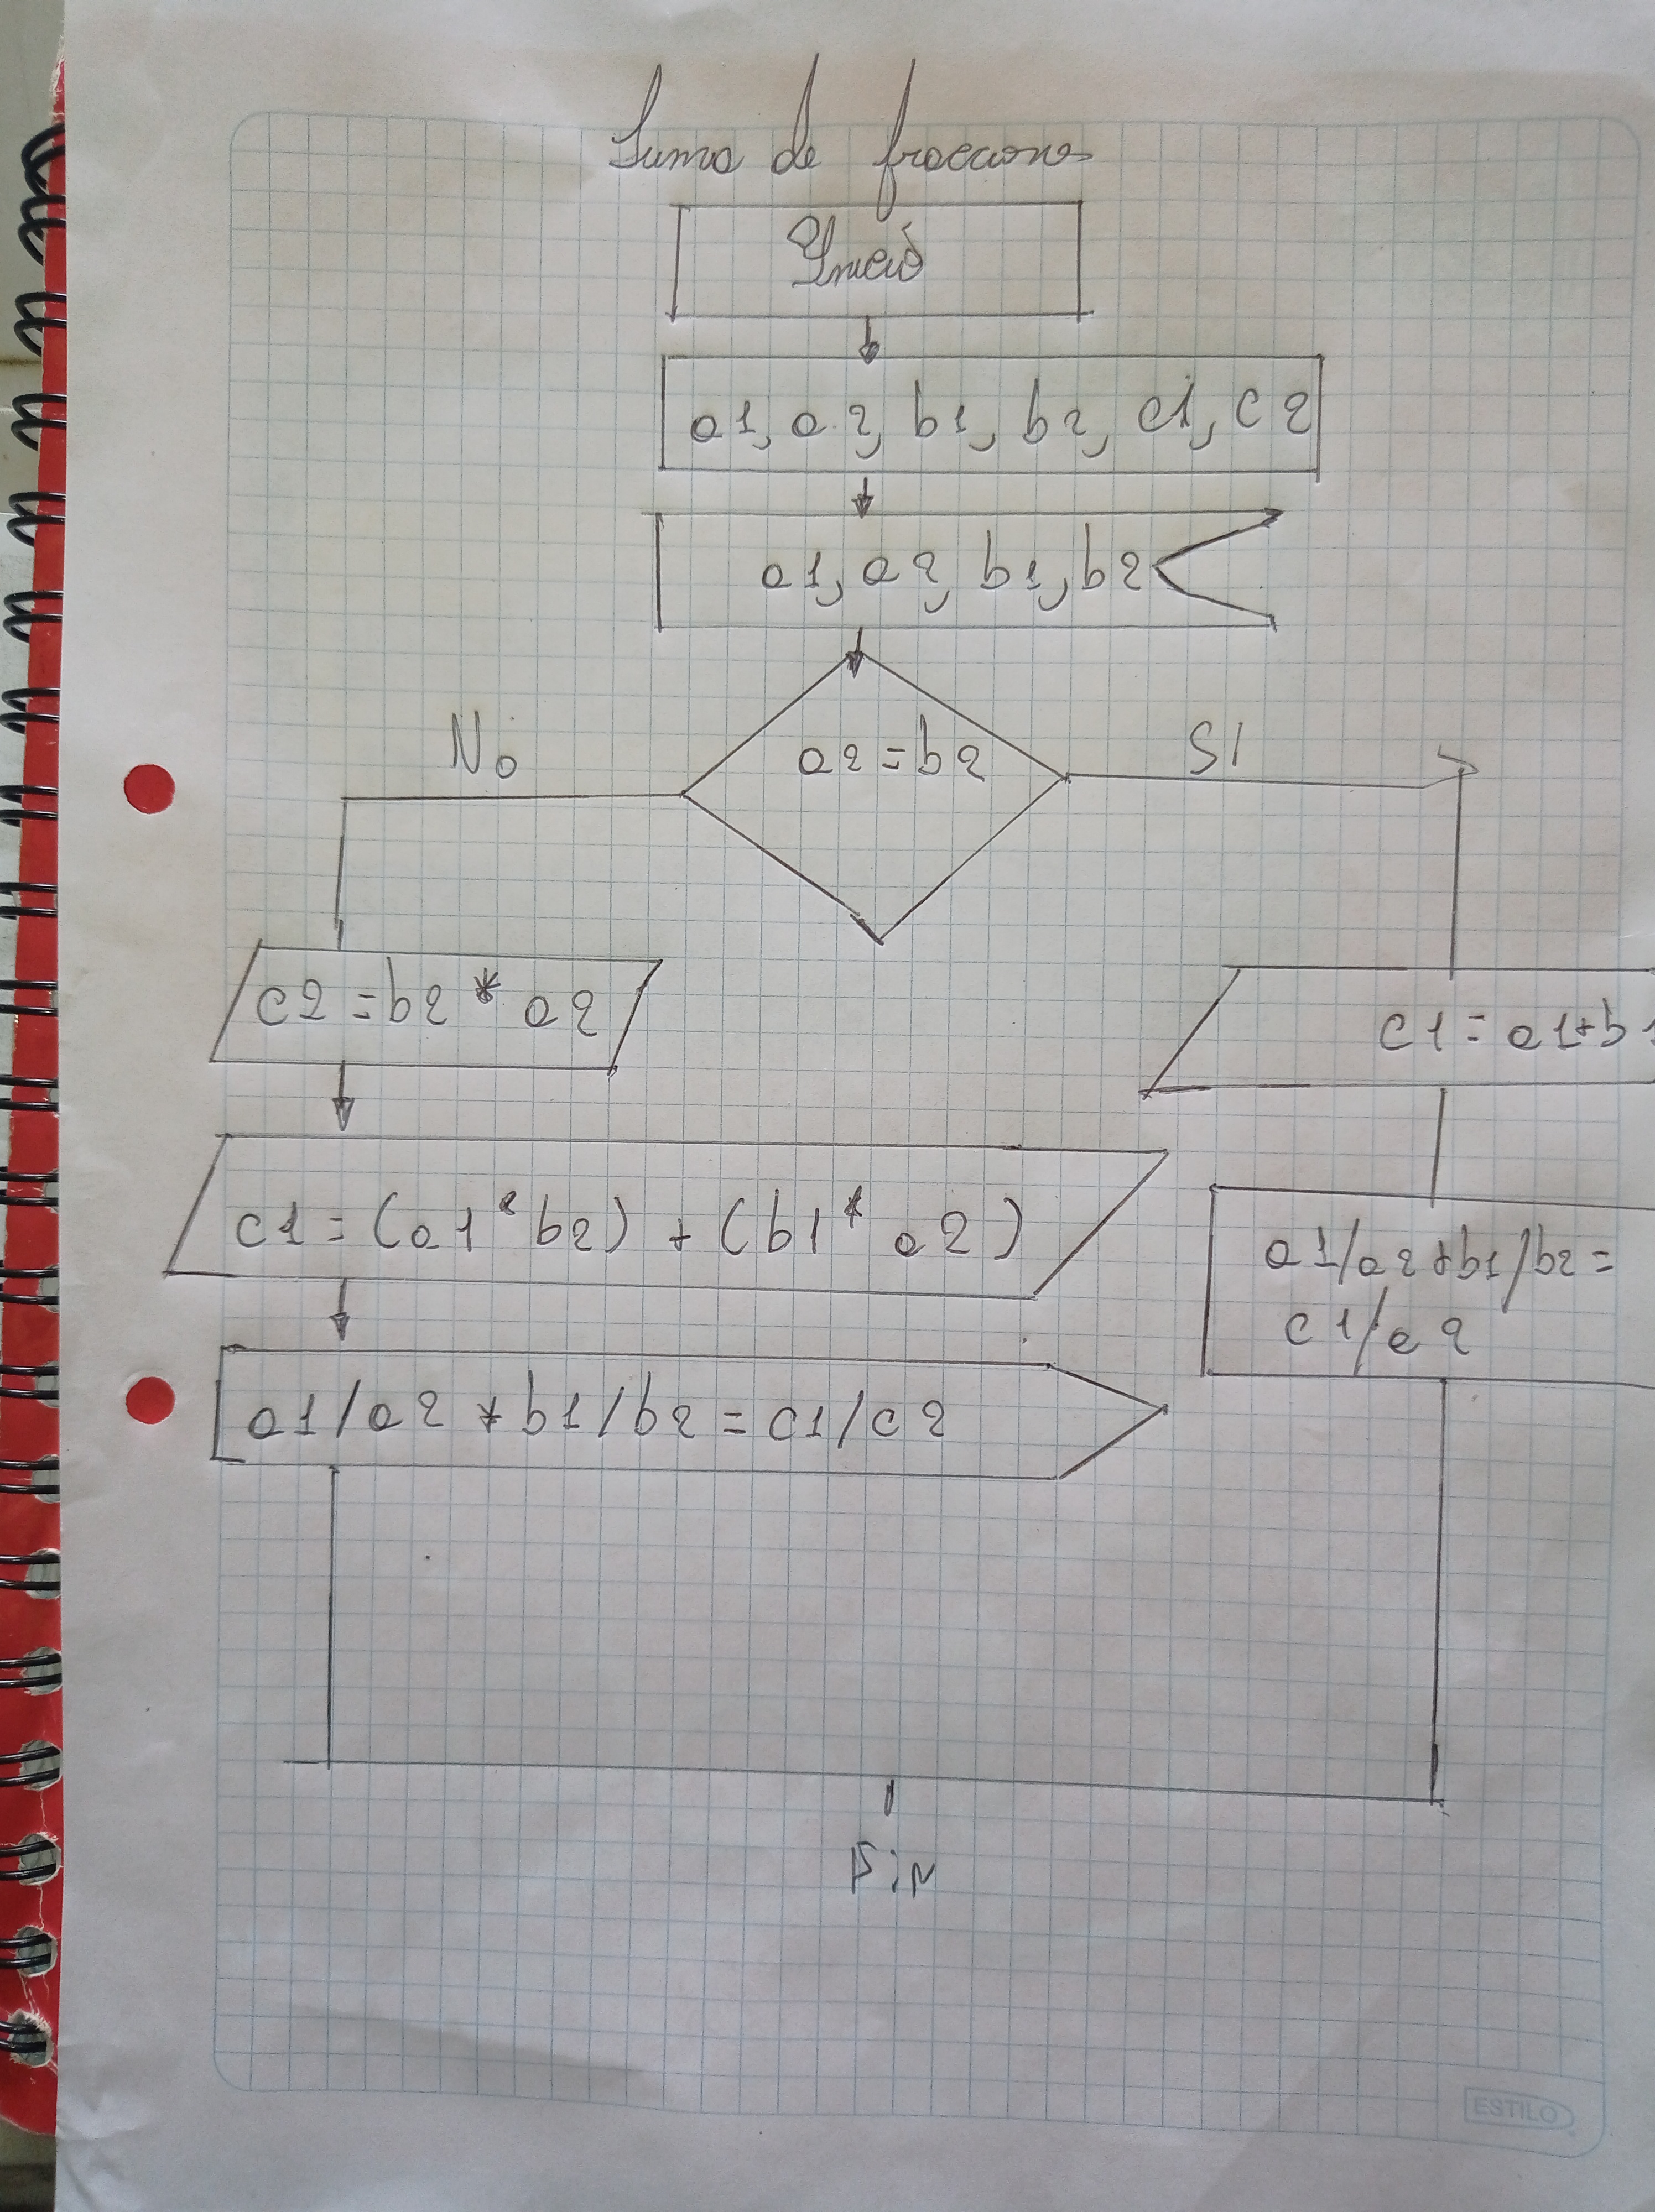 Suma de fracciones
Inicio
a1, a2, b1, b2, c1, c2
a1, a2, b1, b2
No
a2=b2
SI
c2=b2 * a2
c1=a1+b1
c1=(a1*b2)+(b1*a2)
a1/a2+b1/b2=
c1/a2
a1/a2+b1/b2=c1/c2
Fin
ESTILO